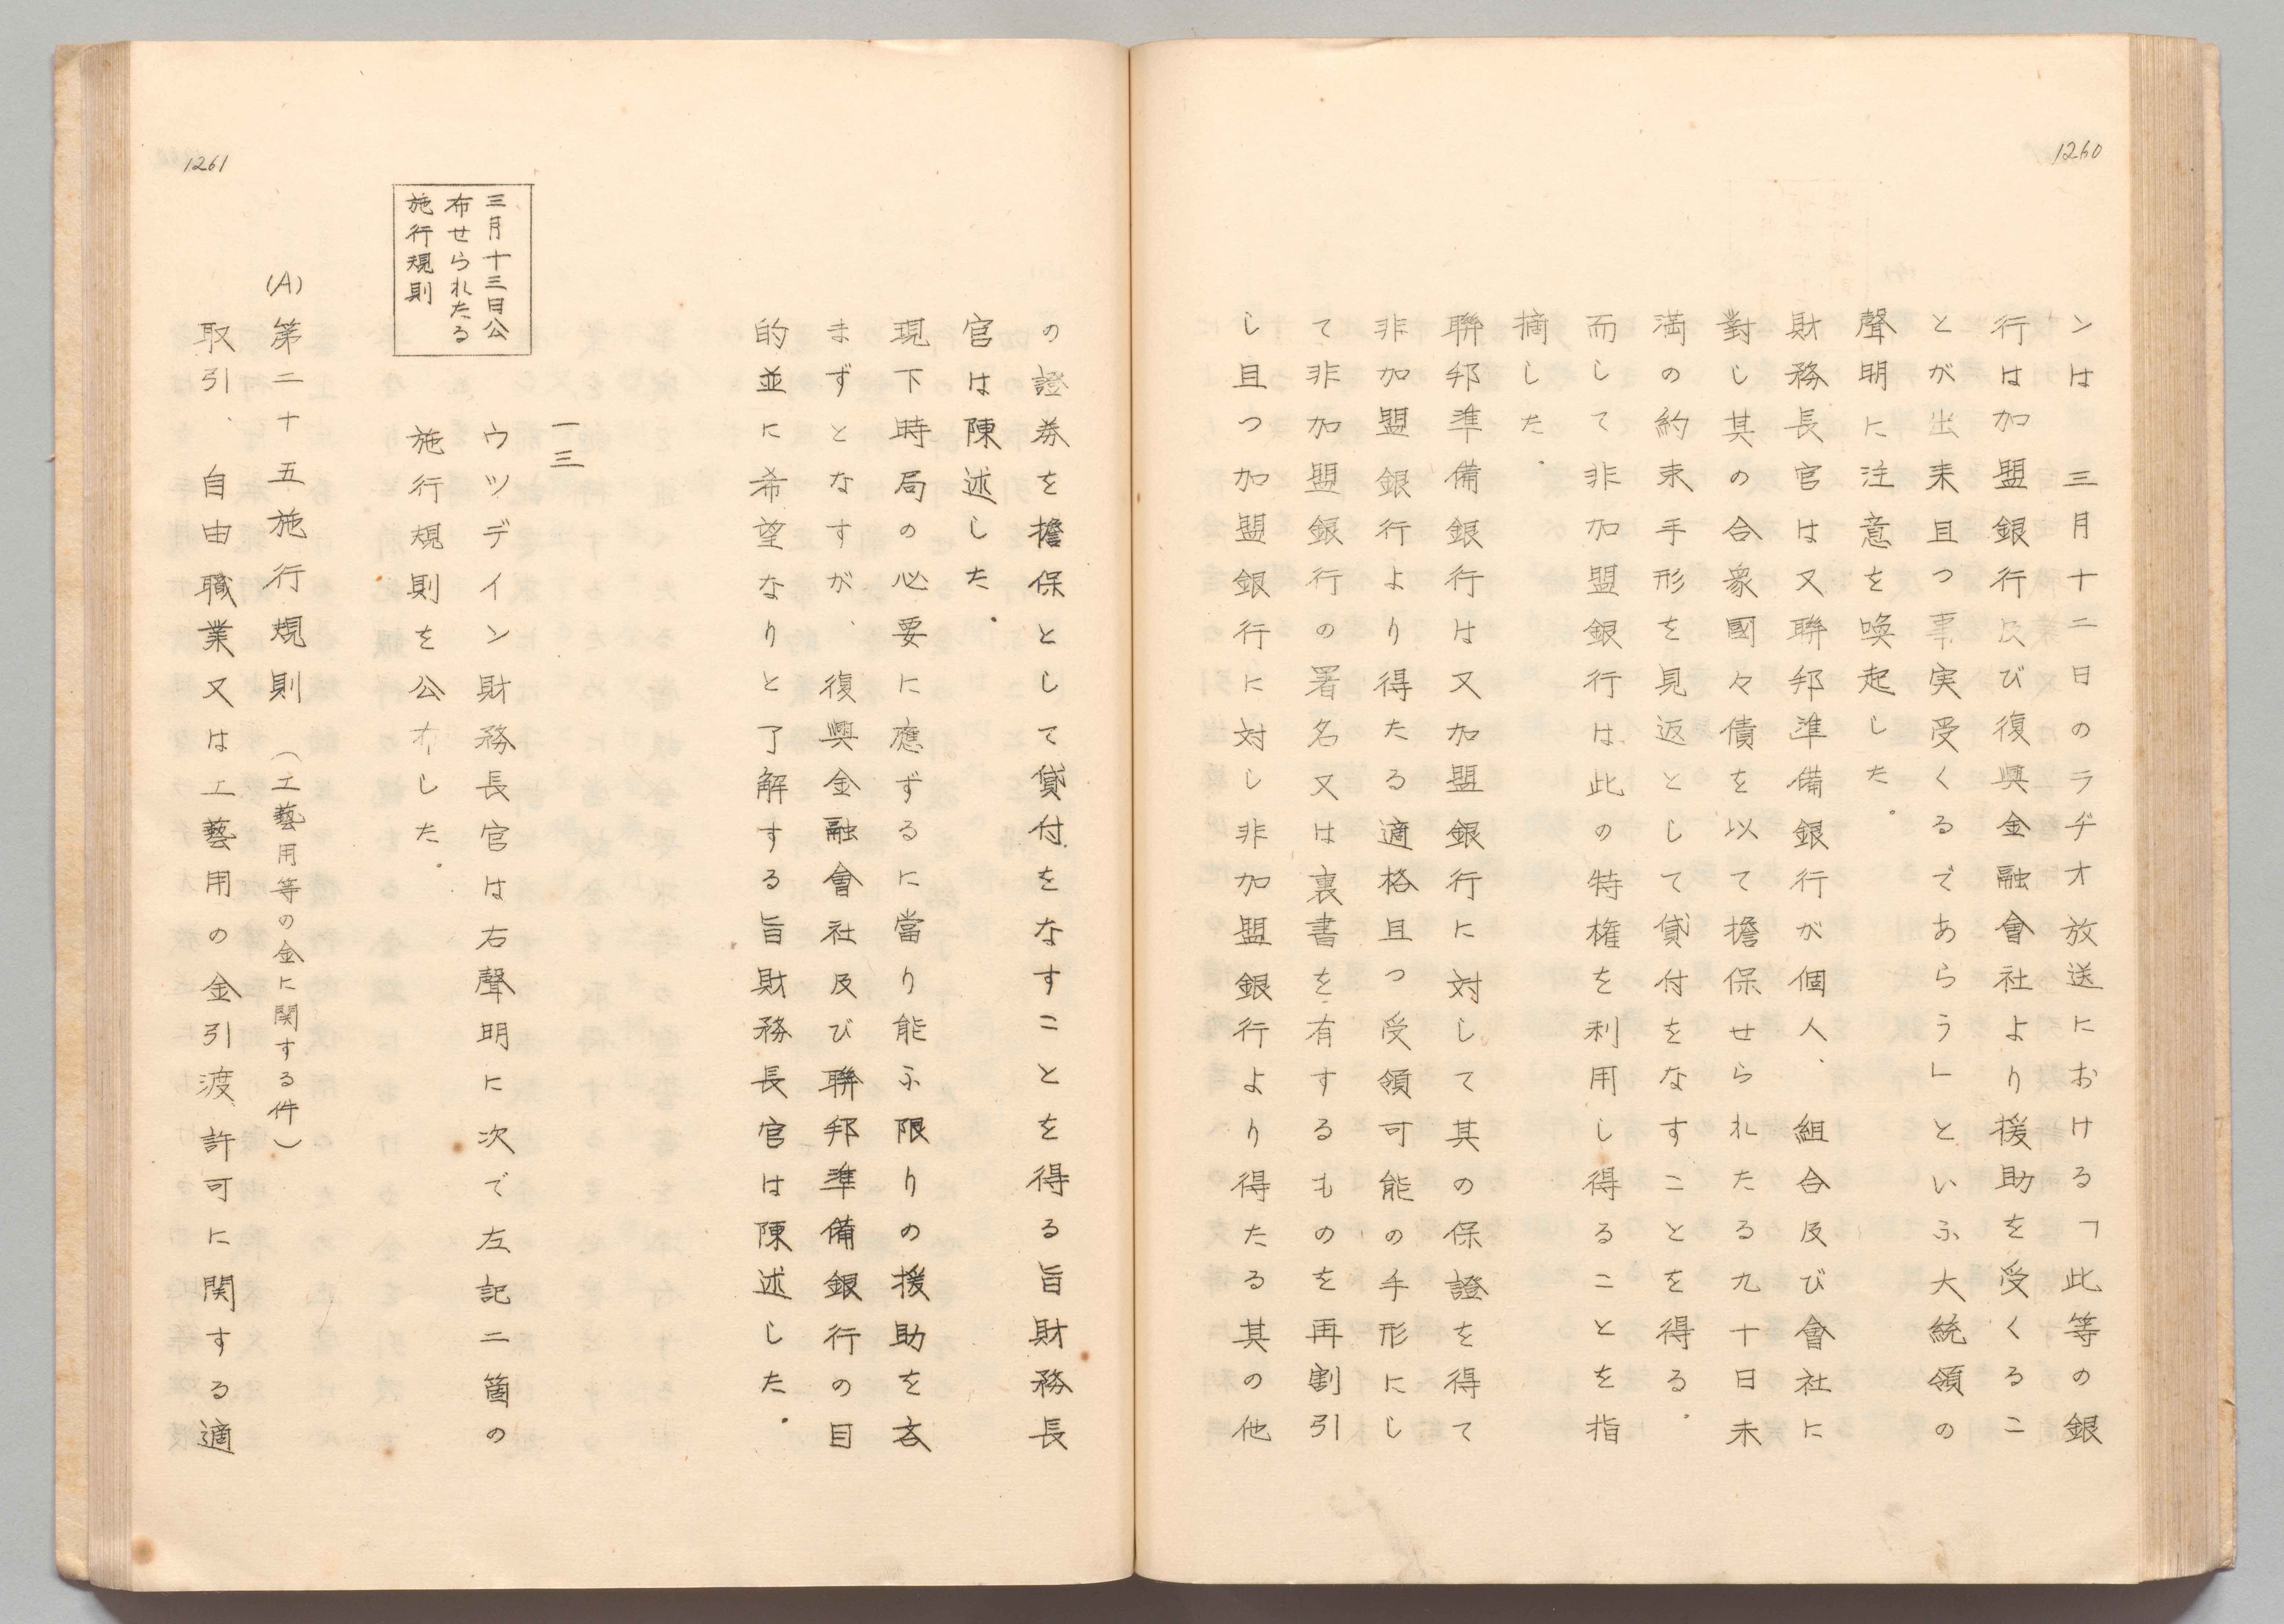 1260
ンは　三月十二日のラヂオ放送における「此等の銀
行は加盟銀行及び復興金融會社より援助を受くるこ
とが出来且つ事実受くるであらう」といふ大統領の
聲明に注意を喚起した。
財務長官は又聯邦準備銀行が個人、組合及び會社に
對し其の合衆國々債を以て擔保せられたる九十日未
満の約束手形を見返として貸付をなすことを得る。
而して非加盟銀行は此の特権を利用し得ることを指
摘した。
聯邦準備銀行は又加盟銀行に対して其の保證を得て
非加盟銀行より得たる適格且つ受領可能の手形にし
て非加盟銀行の署名又は裏書を有するものを再割引
し且つ加盟銀行に対し非加盟銀行より得たる其の他
の證券を擔保として貸付をなすことを得る旨財務長
官は陳述した。
現下時局の必要に應ずるに當り能ふ限りの援助を吝
まずとなすが、復興金融會社及び聯邦準備銀行の目
的並に希望なりと了解する旨財務長官は陳述した。
一三
三月十三日公
布せられたる
施行規則
ウツデイン財務長官は右聲明に次で左記二箇の
施行規則を公布した。
(A)第二十五施行規則　（工藝用等の金に関する件）
取引、自由職業又は工藝用の金引渡許可に関する適
1261